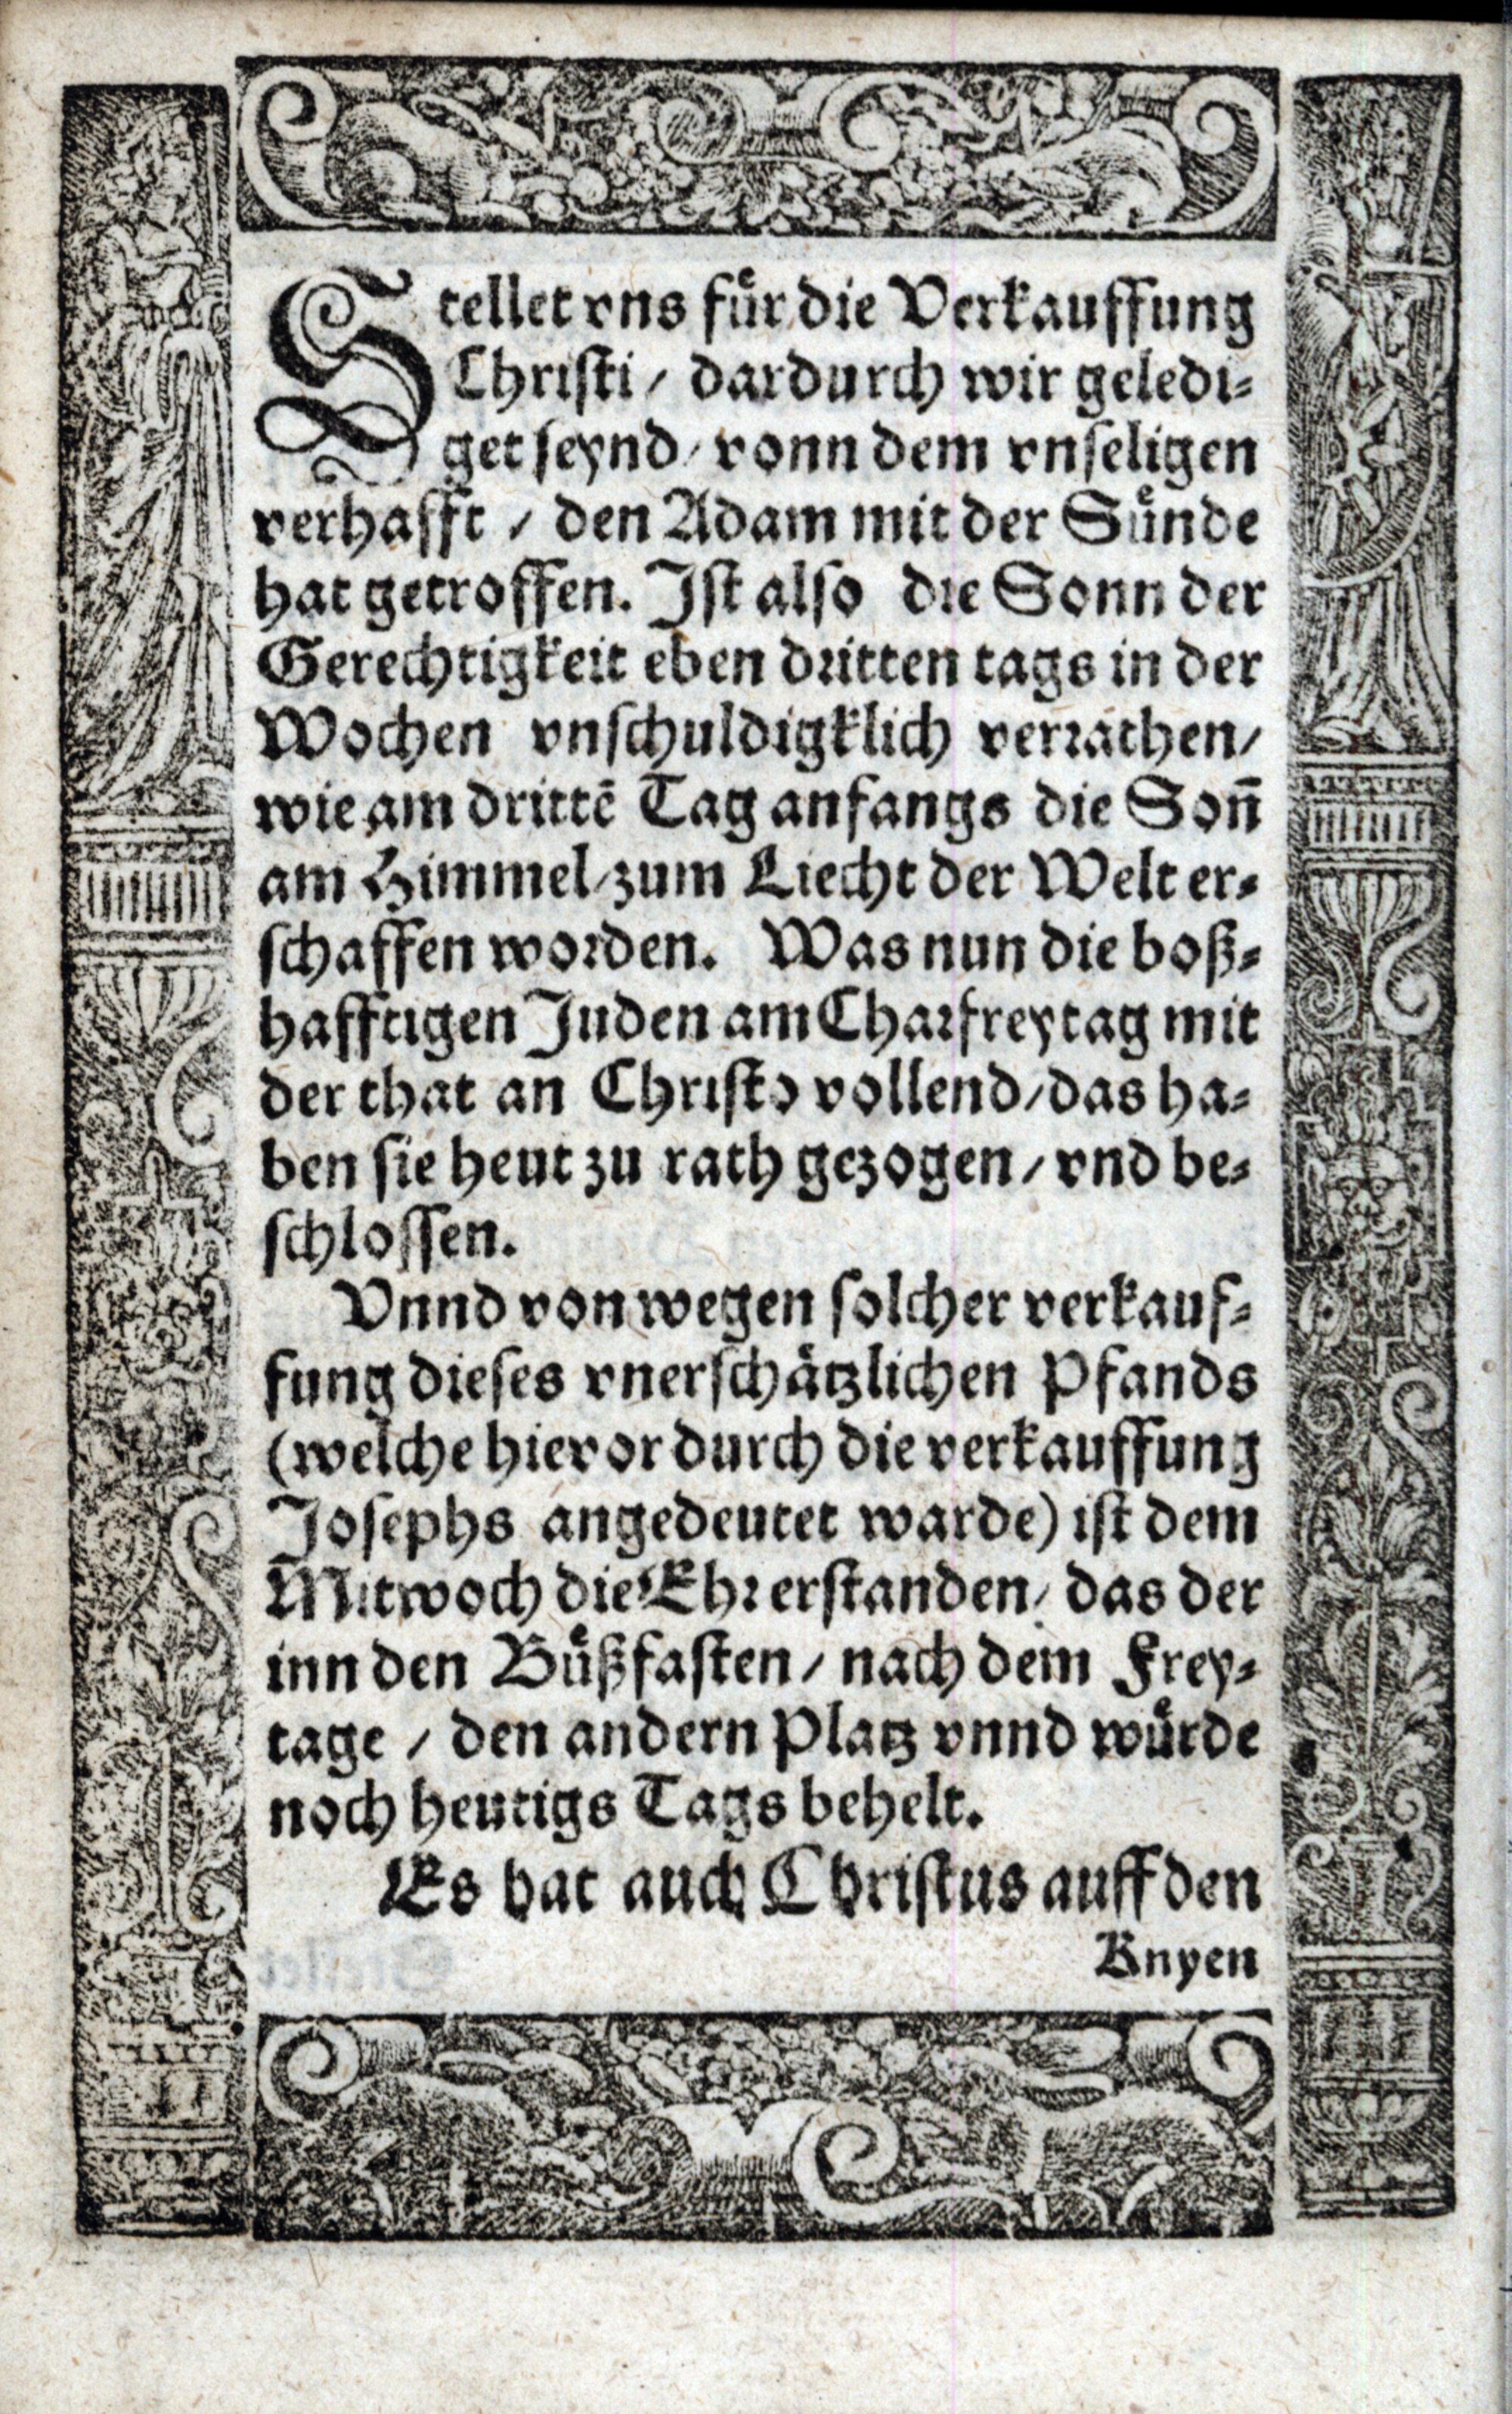 Stellet vns fuͤr die Verkauffung
Christi / dardurch wir geledi⸗
get seynd / vonn dem vnseligen
verhafft / den Adam mit der Suͤnde
hat getroffen. Ist also die Sonn der
Gerechtigkeit eben dritten tags in der
Wochen vnschuldigklich verrathen /
wie am dritte̅ Tag anfangs die Son̅
am Himmel / zum Liecht der Welt er⸗
schaffen worden. Was nun die boß⸗
hafftigen Juden am Charfreytag mit
der that an Christo vollend / das ha⸗
ben sie heut zu rath gezogen / vnd be⸗
schlossen.
Vnnd von wegen solcher verkauf⸗
fung dieses vnerschaͤtzlichen Pfands
(welche hievor durch die verkauffung
Josephs angedeutet warde) ist dem
Mitwoch die Ehr erstanden / das der
inn den Buͤßfasten / nach dem Frey⸗
tage / den andern Platz vnnd wuͤrde
noch heutigs Tags behelt.
Es hat auch Christus auff den
Knyen